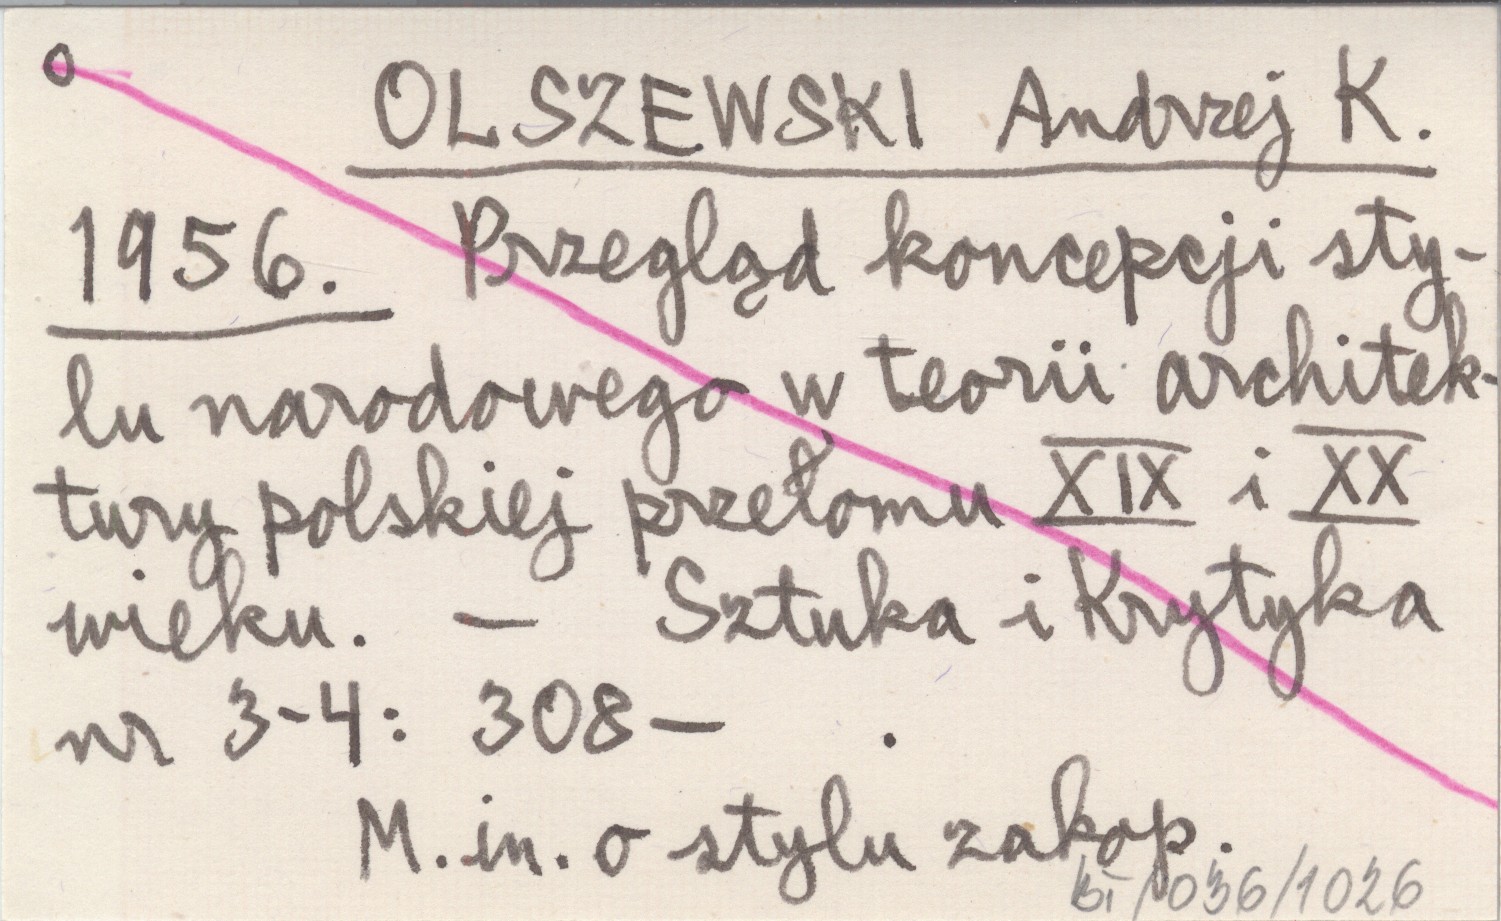 o
OLSZEWSKI Andrzej K.
1956. Przegląd koncepcji sty-
lu narodowego w teorii architek-
tury polskiej przełomu XIX i XX
wieku. — Sztuka i Krytyka
nr 3-4: 308— .
M. in. o stylu zakop.
BI/036/1026